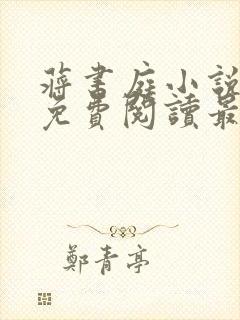 蔣書庭小說
免費閱讀最
鄭青亭